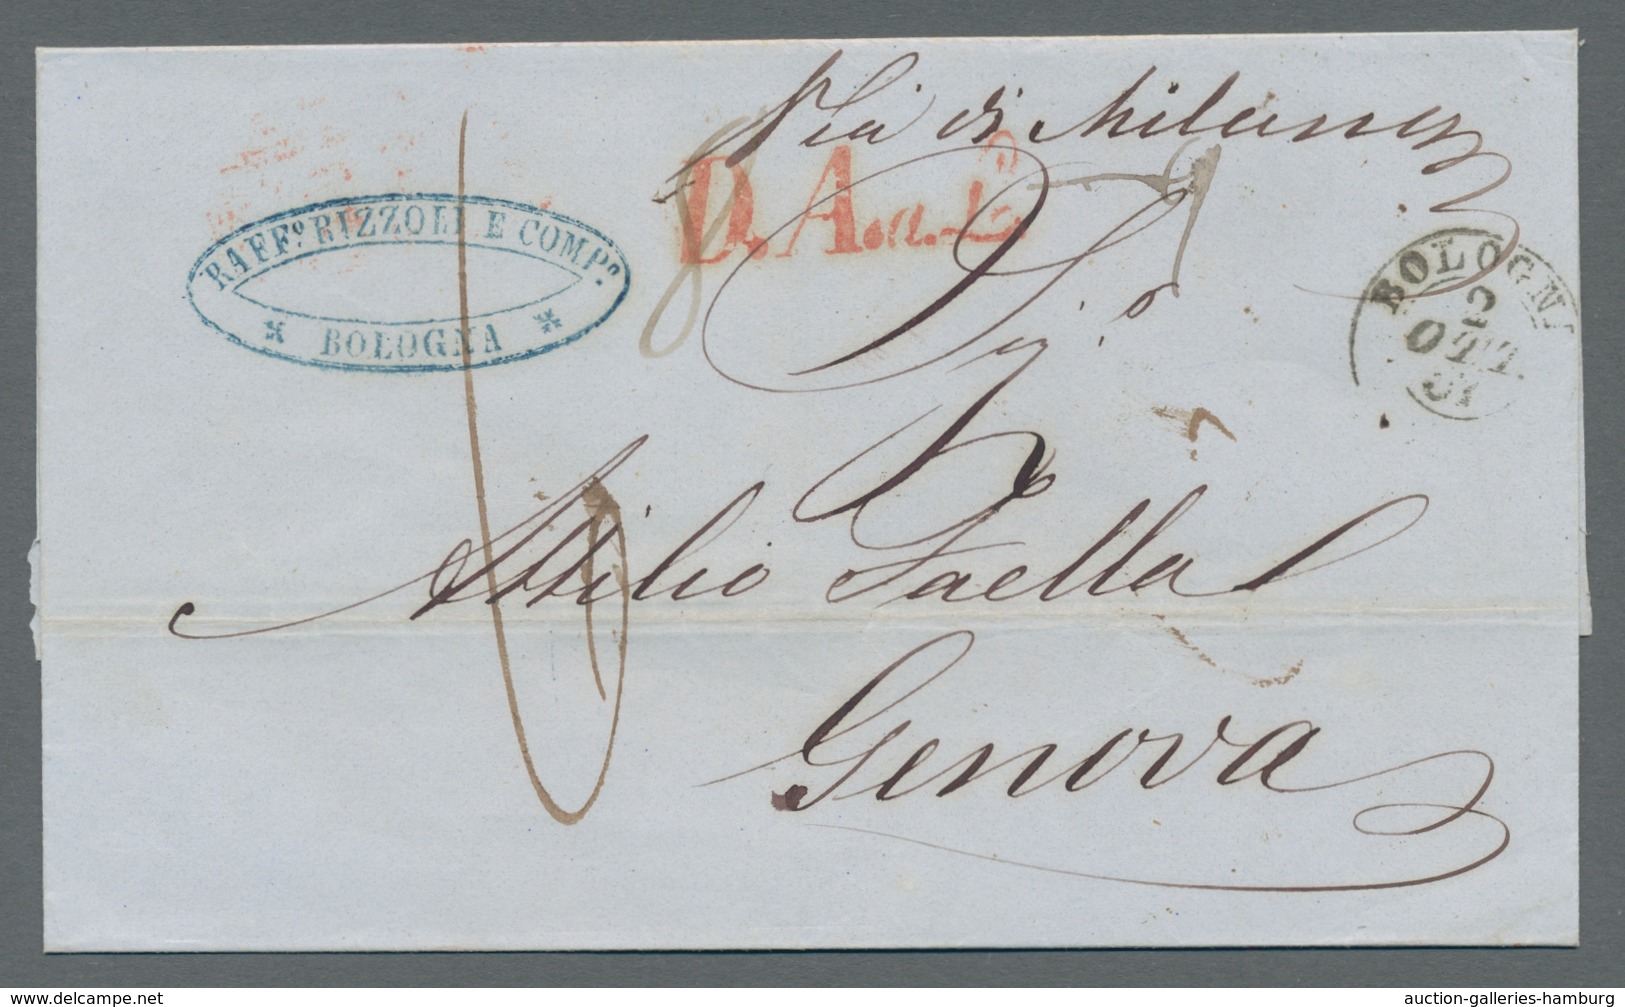 Via di Milano
D. A.
RAFF.º RIZZOLI E COMP.º
BOLOGNA
BOLOGNA
OTT.
Sig.º
Attilio Faella
Genova
auction-galleries-hamburg
www.delcampe.net